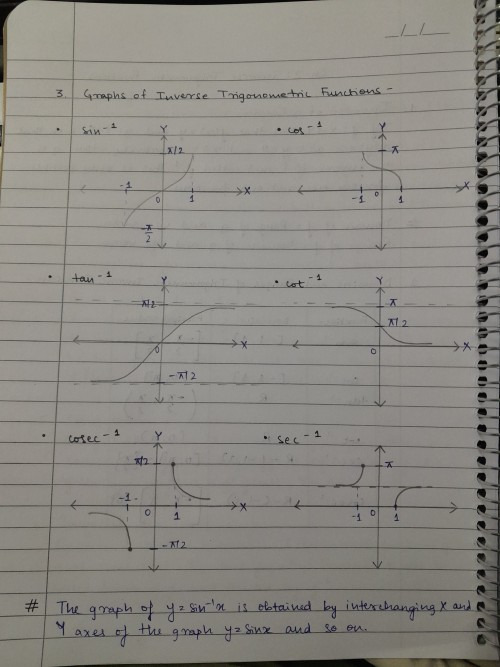 _/_/_
3. Graphs of Inverse Trigonometric Functions -
• sin⁻¹ Y • cos⁻¹ Y
π/2 π
-1 0 1 X -1 0 1 X
-π/2
• tan⁻¹ Y • cot⁻¹ Y
π/2 π
π/2
0 X 0 X
-π/2
• cosec⁻¹ Y • sec⁻¹
π/2 π
-1 0 1 X -1 0 1
-π/2
# The graph of y = sin⁻¹x is obtained by interchanging X and
Y axes of the graph y = sinx and so on.